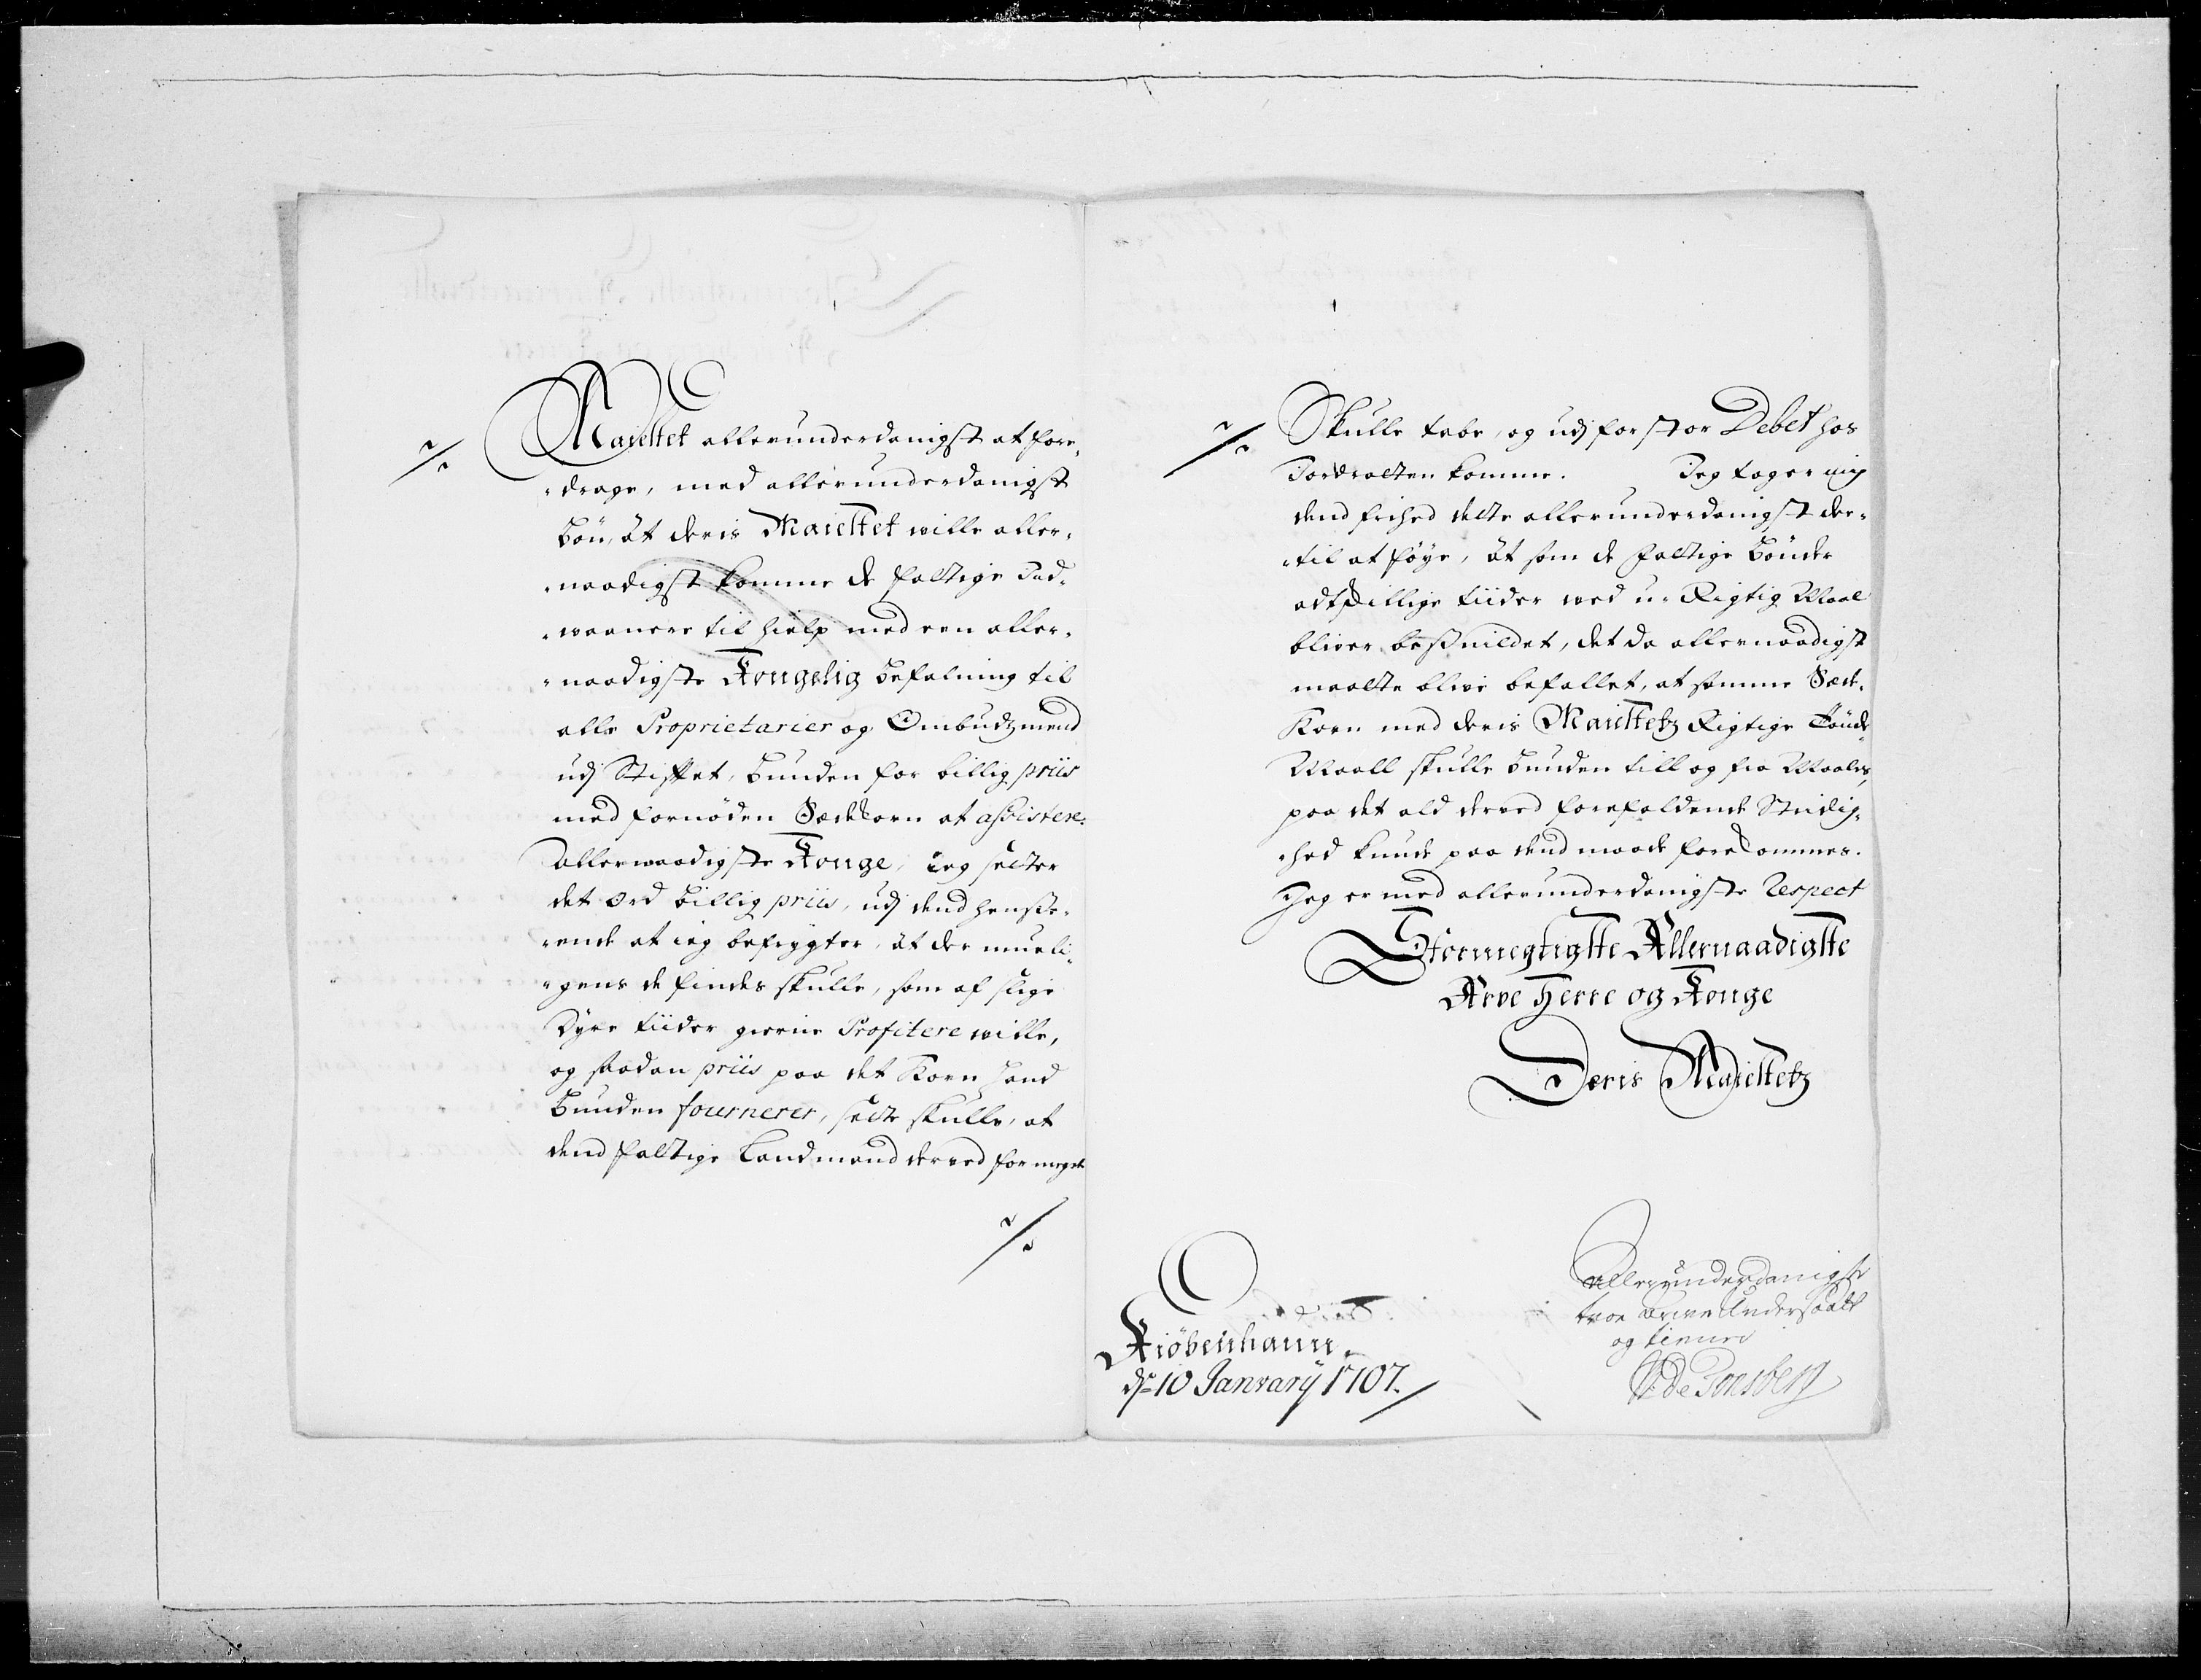 Majestet allerunderdanigst at fore-
drage, med allerunderdanigst
bön, at deris Majestet wille aller-
naadigst komme de fattige Ind-
waanere til hielp med een aller-
naadigste Kongelig befalning til
alle Proprietarier og Ombudzmend
udj Stiftet, bunden for billig priis
med fornöden Sædekorn at assistere.
Allernaadigste Konge, ieg setter
det ord billig priis, udj dend hense-
ende at ieg befrygter, at der mueli-
gens de findes skulle, som af slige
dyre tiider gierne Profitere wille,
og saadan priis paa det Korn hand
bunden fournerer, sette skulle, at
dend fattige Landmand derved for meget
Skulle tabe, og udj for stor Debet hos
Jordrotten komme. Jeg tager mig
dend frihed dette allerunderdanigst der-
til at föye, at som de fattige bönder
adtskillige tiider wed u-Rigtig Maal
bliver besnildet, det da allernaadigst
maatte blive befallet, at samme Sæde-
Korn med deris Majestetz Rigtige Tönde-
Maall skulle bunden till og fra Maales,
paa det ald derved forefaldende Stridig-
hed kunde paa dend maade forekommes.
Jeg er med allerunderdanigste Respect
Stormegtigste Allernaadigste
Arve Herre og Konge
Deris Majestetz
Kiöbenhaun
d: 10 January 1707.
Allerunderdanigste
troe Arve Undersaatt
og tiener
De Tonsberg